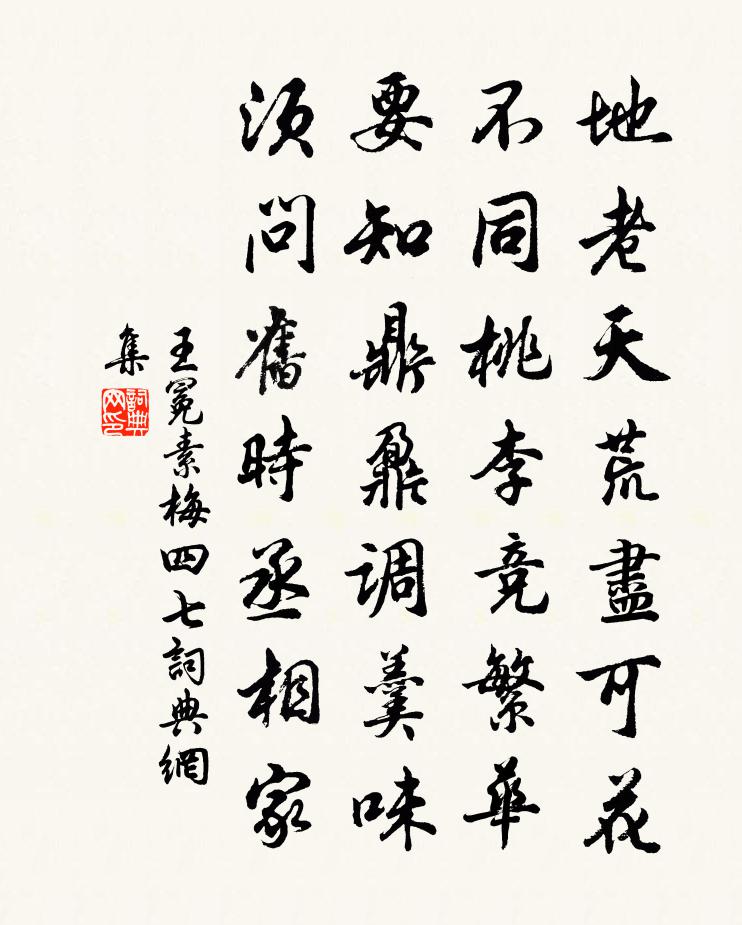 地老天荒盡可花
不同桃李競繁華
要知鼎鼐調羹味
須問舊時丞相家
王冕素梅四七詞典網
集
詞典
网印